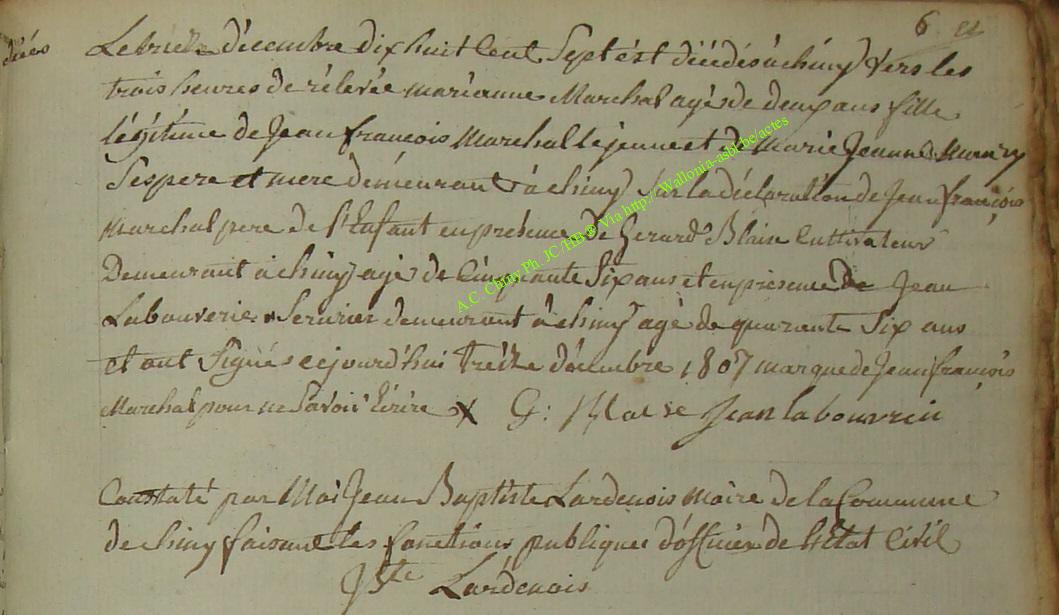 6 et
décès
Le treize décembre dix huit Cent Sept ést décédés à chiny vers les
trois heures de rélevée marianne Marchal agés de deux ans fille
légitime de Jean francois Marchal le jeune et de Marie Jeanne
Ses pere et mere démeurant à chiny Sur la déclaration de Jean francois
Marchal pere de l'Enfant en présence de Gerard Blaise Cultivateur
Demeurant à chiny agé de Cinquante Six ans et en présence de Jean
Labouverie Serurier demeurant à chiny agé de quarante Six ans
et ont Signés cejourd'hui treize décembre 1807 marque de Jean francois
Marchal pour ne Savoir Ecrire X G: Jean labouvrie
A.C. Chiny Ph. JC/HB @ Via http://Wallonia-asbl.be/actes
Constaté par Moi Jean Baptiste Lardenois maire de la Commune
de chiny faisant les fonctions publiques d'officier de l'Etat Civil
JBte Lardenois